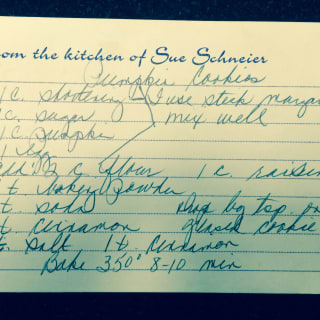 om the kitchen of Sue Schneier
Pumpkin Cookies
1 C. shortening I use stick margar
1 C. sugar mix well
1 C pumpkin
1 egg
add 2 C. flour 1 C. raisin
1 t baking powder
t. soda Drop by tsp. on
t. cinnamon greased cookie
t. salt 1 t. Cinnamon
Bake 350° 8-10 min